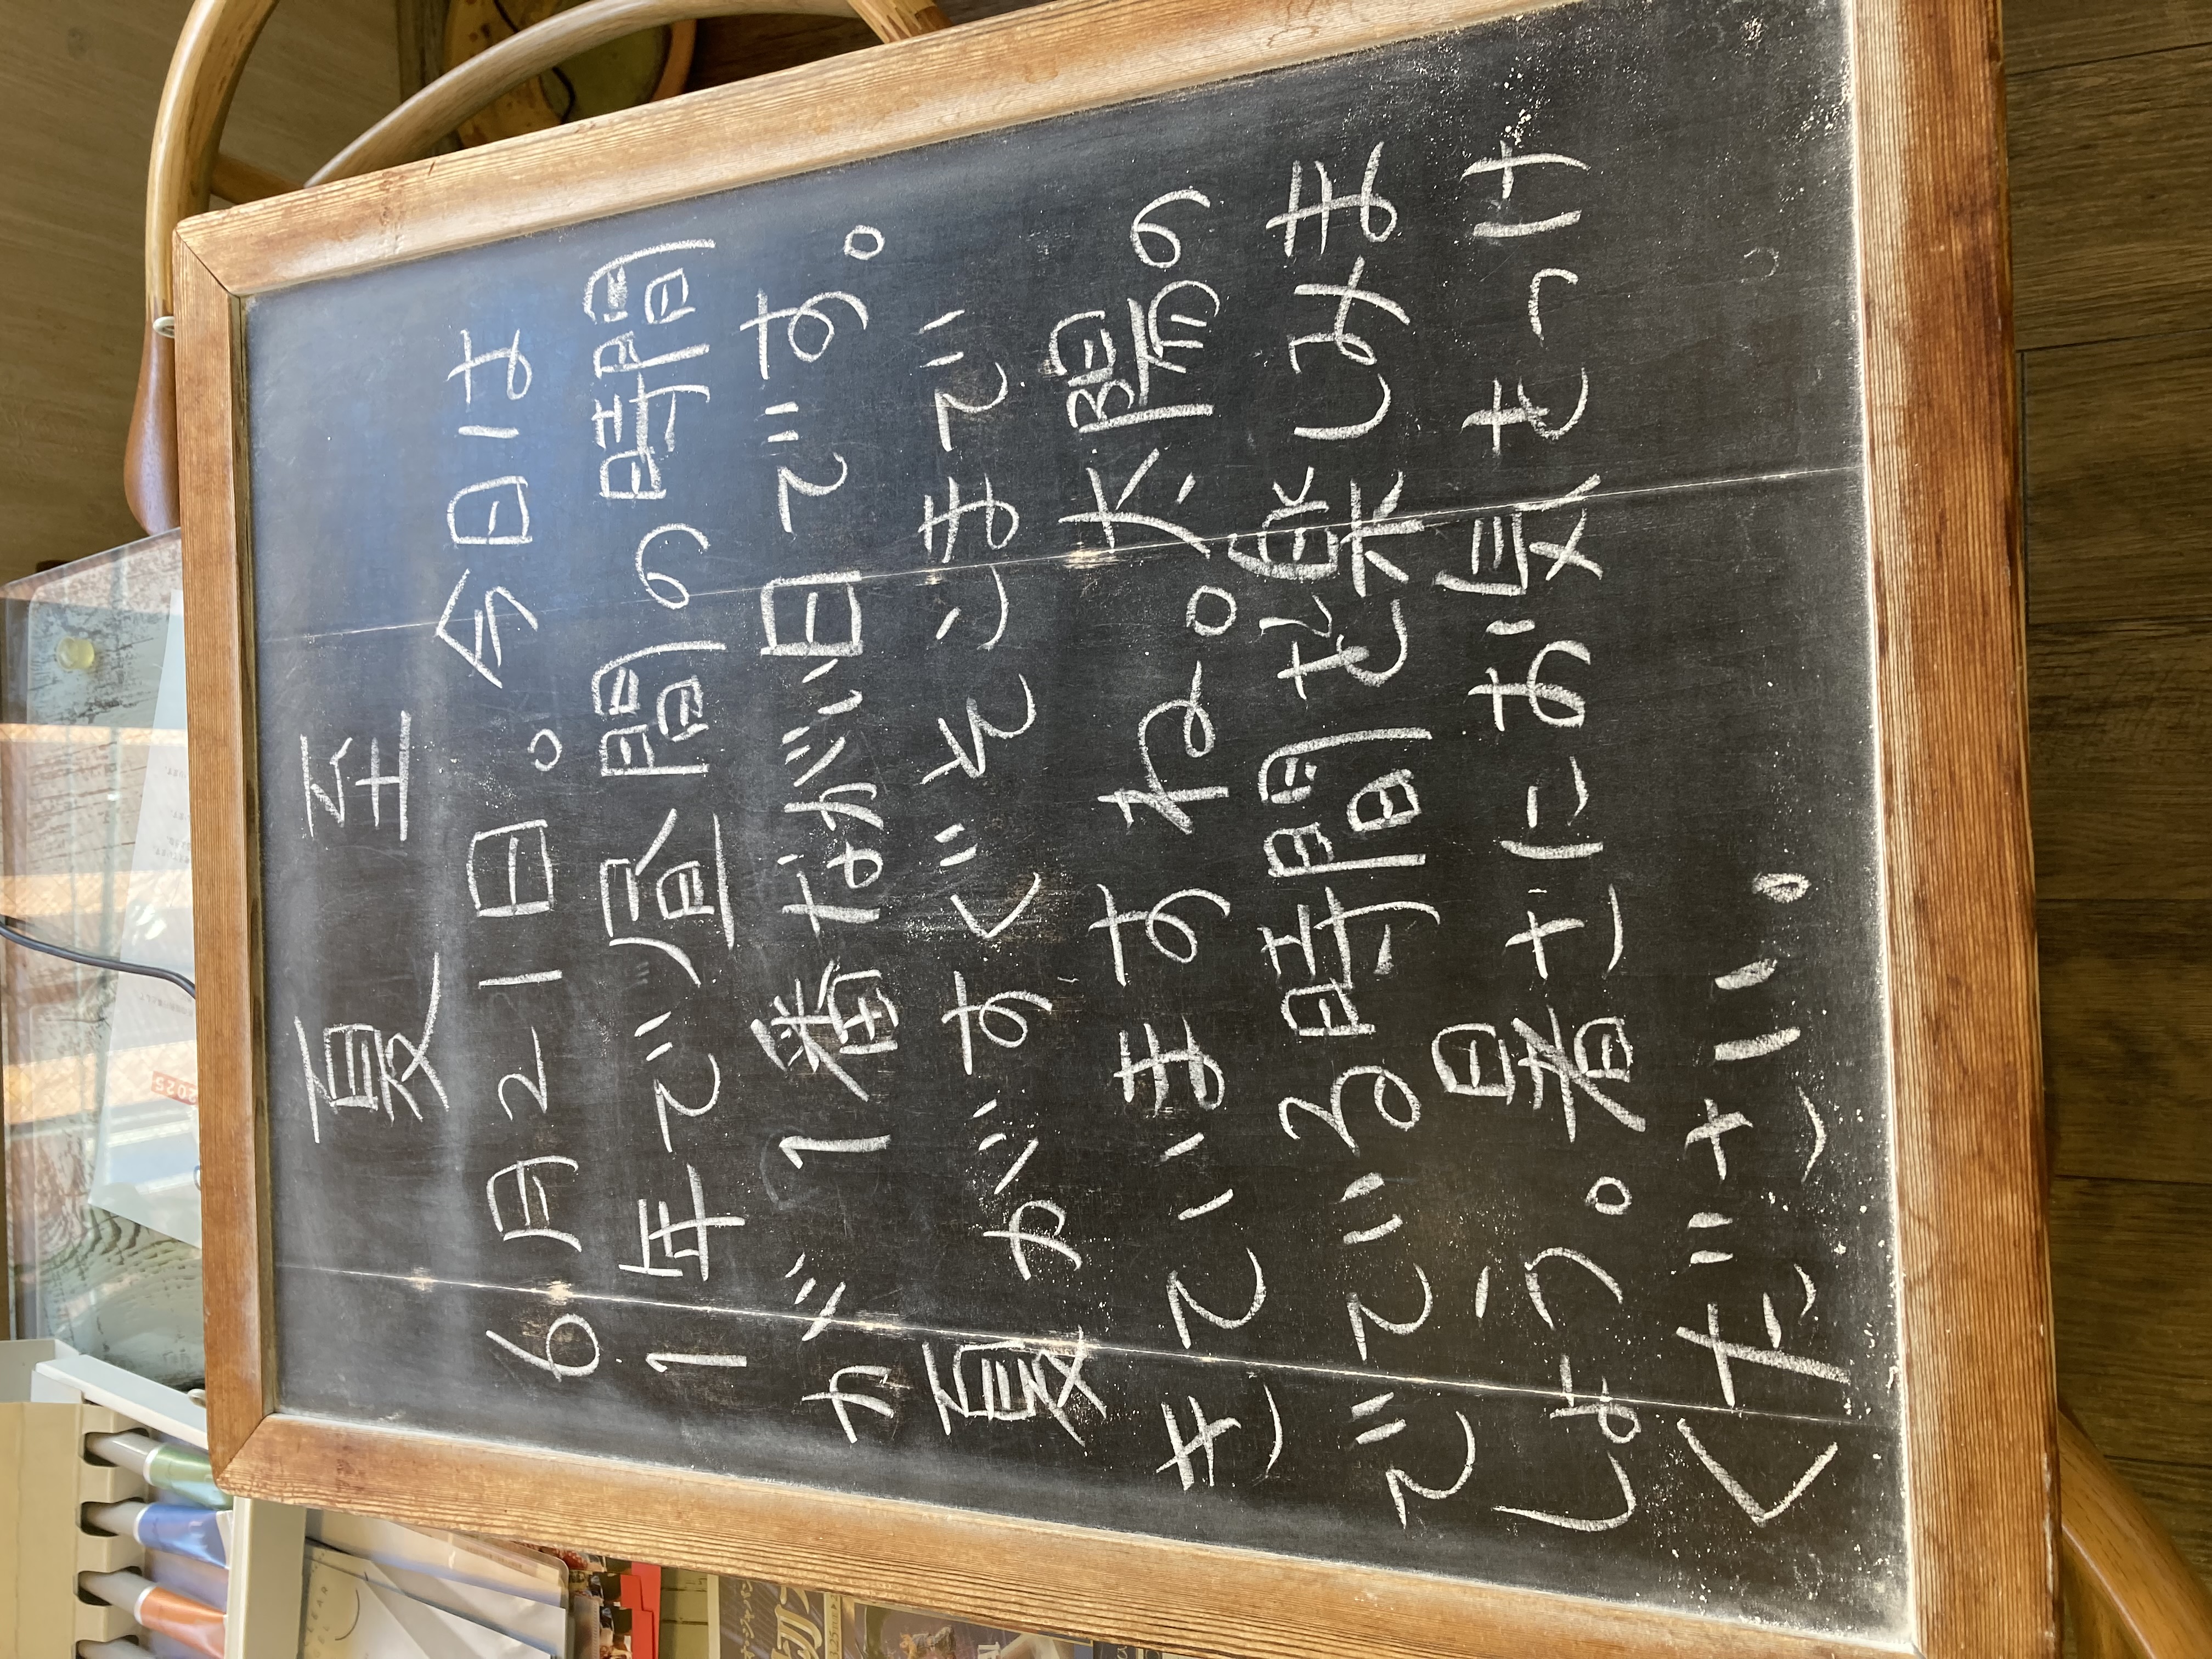 夏 至
6月21日。今日は
1年で昼間の時間
が1番ながい日です。
夏がすぐそこまで
きていますね。太陽の
でている時間を楽しみま
しょう。暑さにお気をつけ
ください。
2025